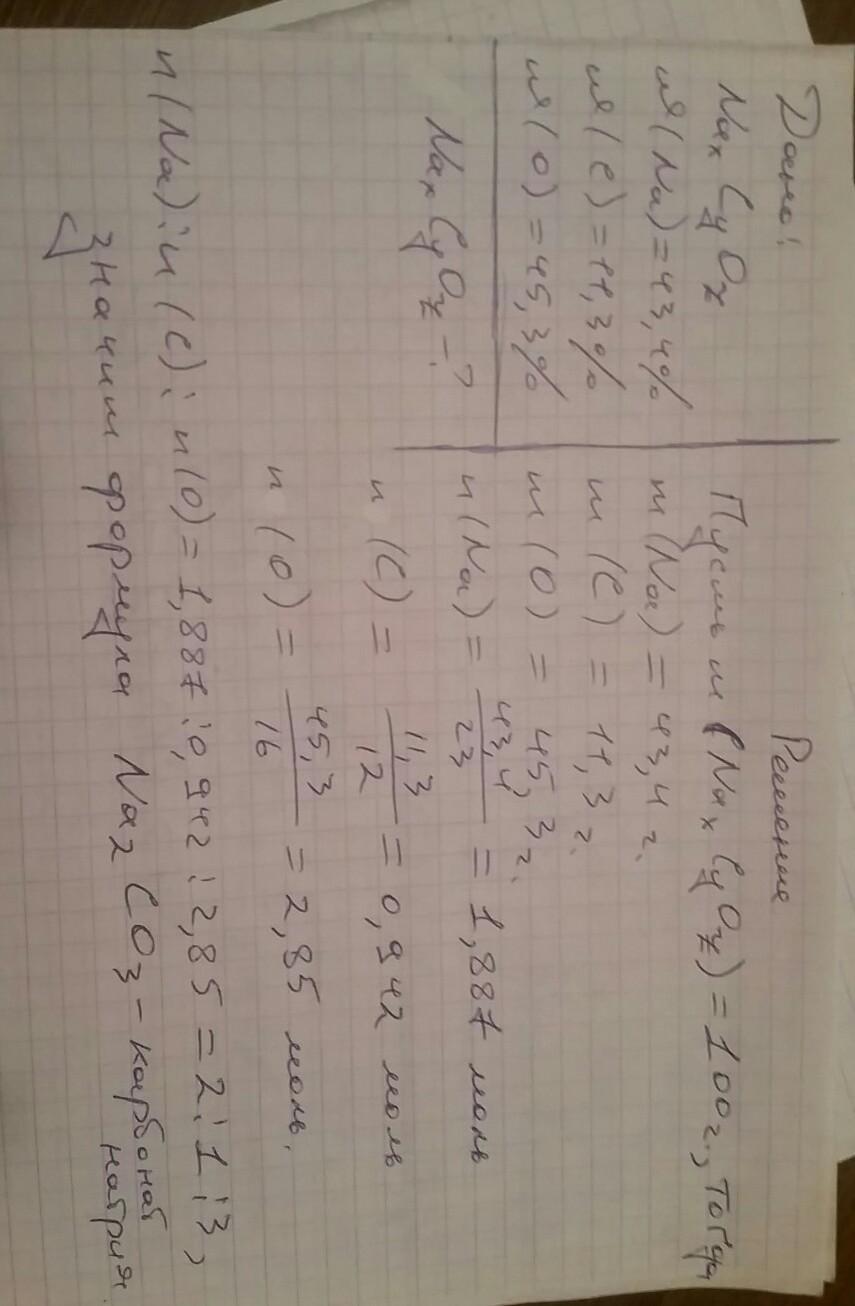 Дано:
NaxCyOz
ω(Na)=43,4%
ω(C)=11,3%
ω(O)=45,3%
NaxCyOz-?
Решение
Пусть m(NaxCyOz)=100г., тогда
m(Na)=43,4г.
m(C)=11,3г.
m(O)=45,3г.
n(Na)=43,4/23=1,887 моль
n(C)=11,3/12=0,942 моль
n(O)=45,3/16=2,85 моль.
n(Na):n(C):n(O)=1,887:0,942:2,85=2:1:3,
значит формула Na2CO3-карбонат
натрия.